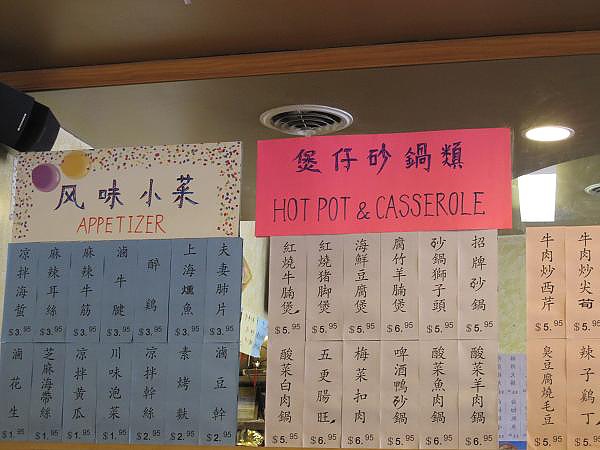 风味小菜
APPETIZER
煲仔砂鍋類
HOT POT & CASSEROLE
凉拌海蜇 $3.95
麻辣耳絲 $3.95
麻辣牛筋 $3.95
滷牛腱 $3.95
醉鷄 $3.95
上海燻魚 $3.95
夫妻肺片 $3.95
滷花生 $1.95
芝麻海帶絲 $1.95
凉拌黄瓜 $1.95
川味泡菜 $1.95
凉拌幹絲 $2.95
素烤麩 $2.95
滷豆幹 $2.95
紅燒牛腩煲 $5.95
紅燒猪脚煲 $5.95
海鮮豆腐煲 $5.95
腐竹羊腩煲 $6.95
砂鍋獅子頭 $5.95
招牌砂鍋 $5.95
酸菜白肉鍋 $5.95
五更腸旺 $6.95
梅菜扣肉 $6.95
啤酒鴨砂鍋 $5.95
酸菜魚肉鍋 $6.95
酸菜羊肉鍋 $5.95
牛肉炒西芹 $5.95
牛肉炒尖筍 $5.95
臭豆腐燒毛豆 $5.95
辣子鷄丁 $5.95